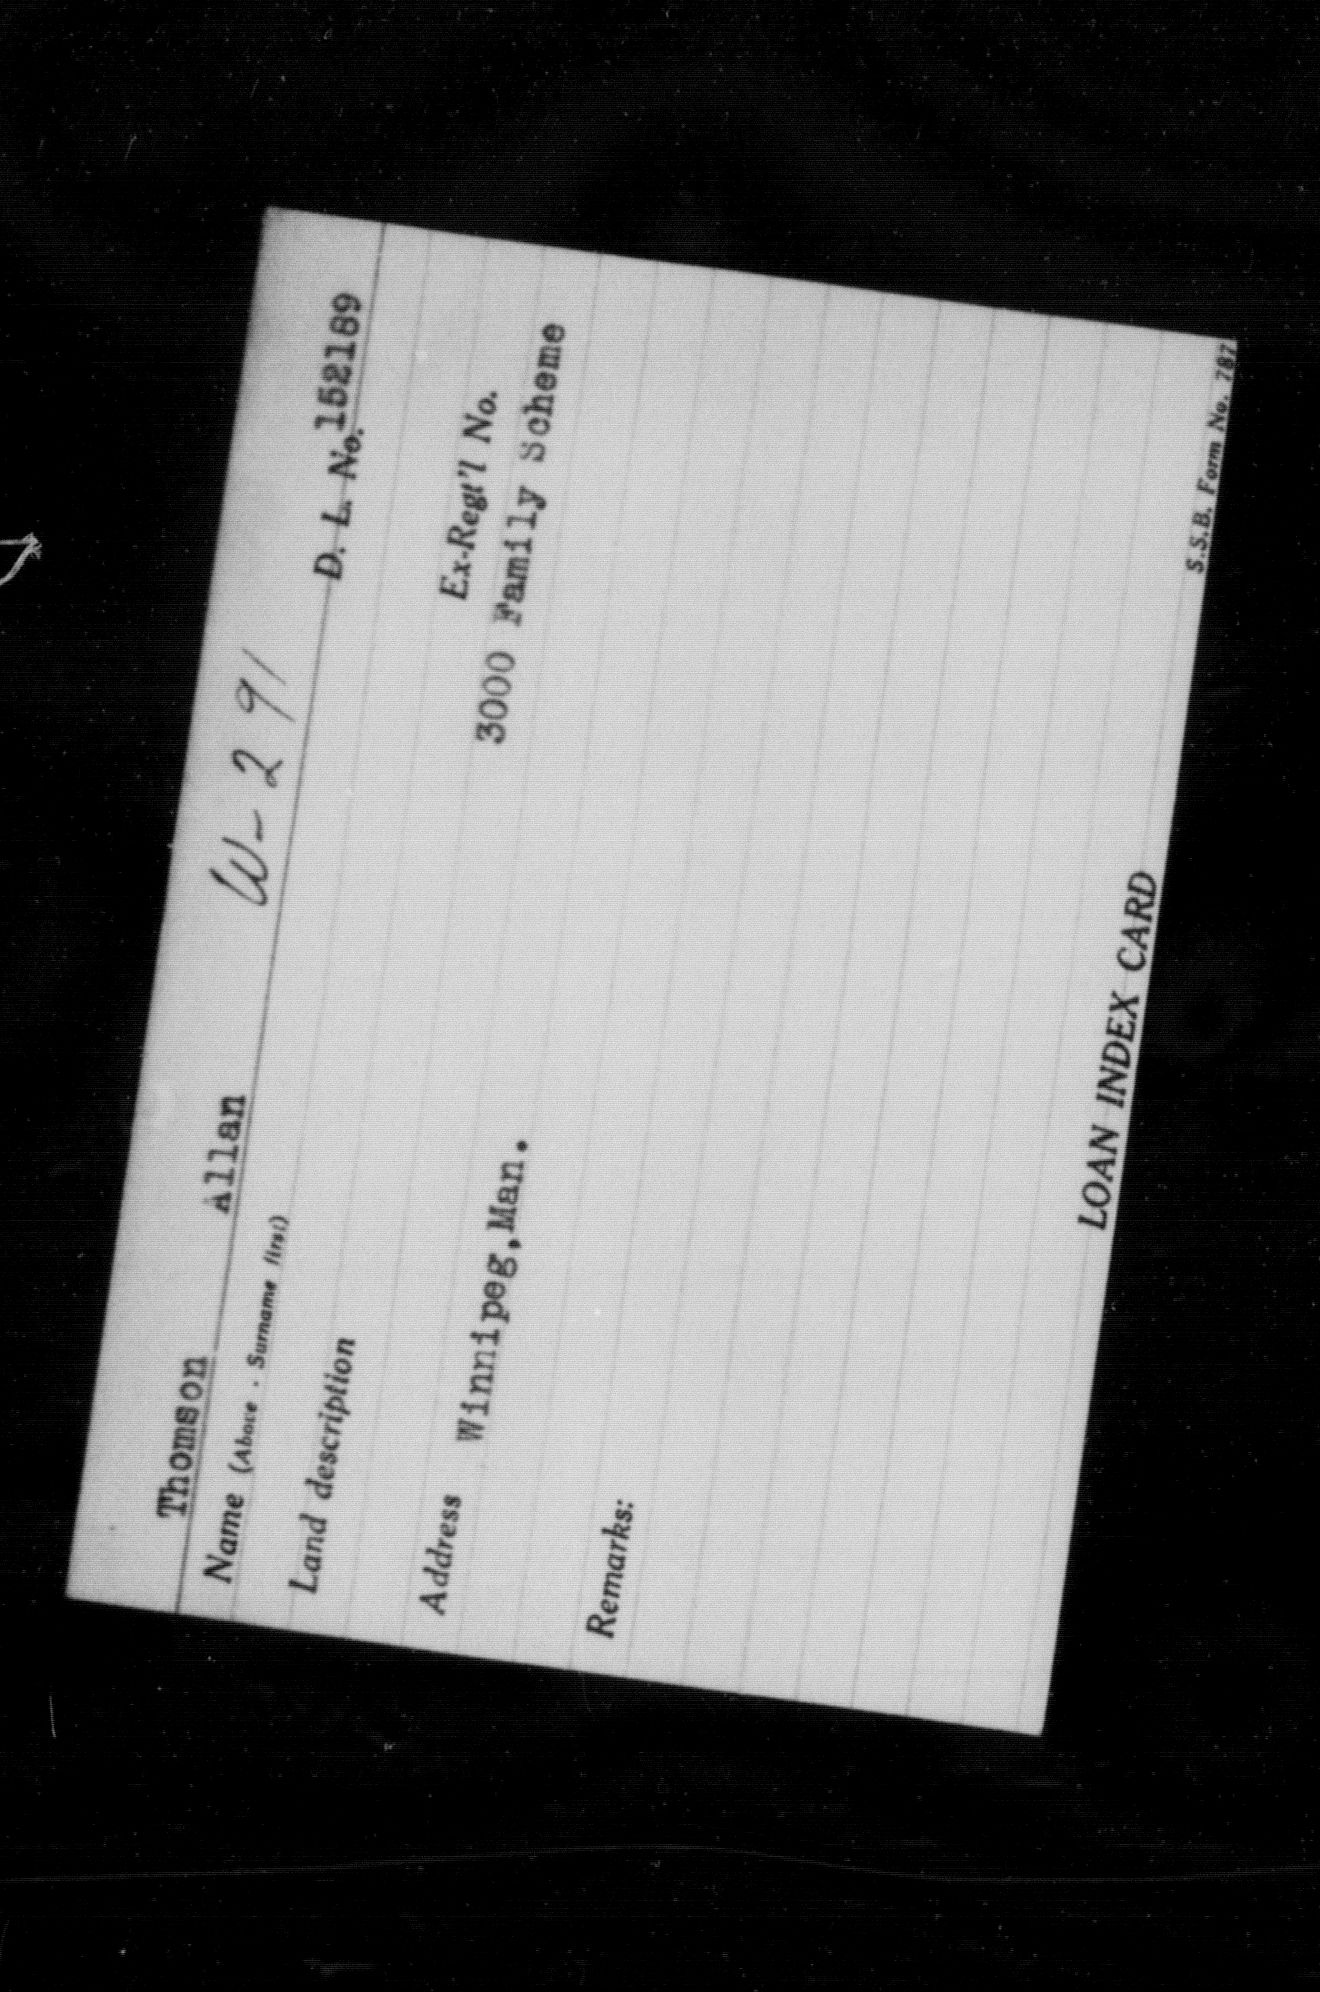 W-291
Thomson Allan D. L. No. 152189
Name (Above . Surname first)
Land description
Ex-Regt'l No.
Address Winnipeg,Man. 3000 Family Scheme
Remarks:
LOAN INDEX CARD
S.S.B. Form No. 787